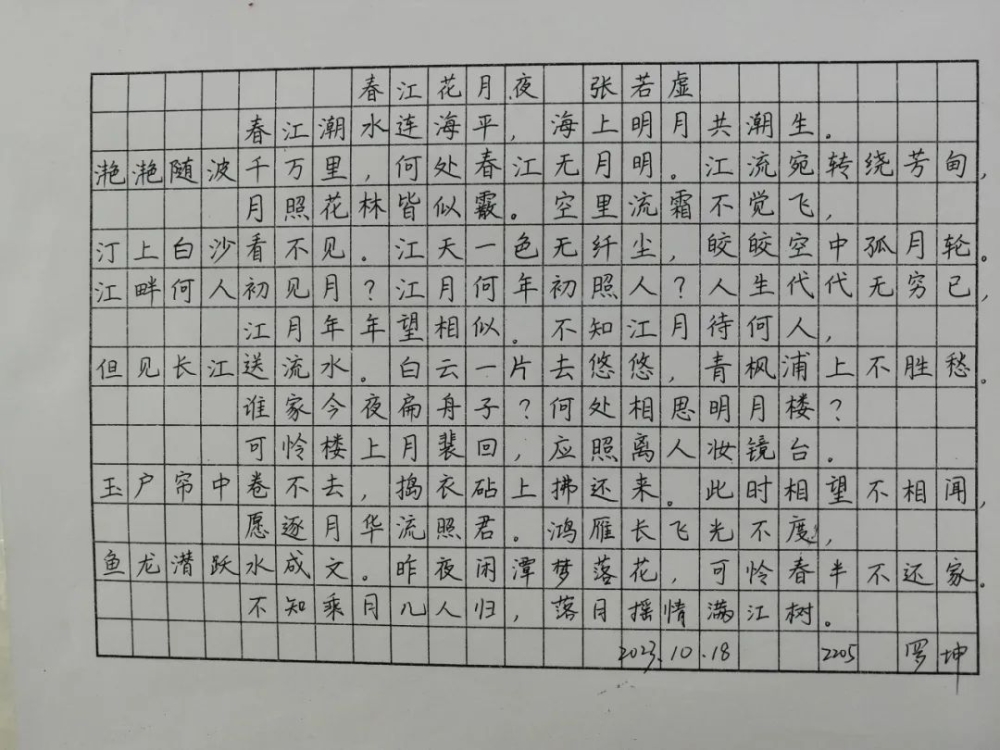 春江花月夜 张若虚
春江潮水连海平，海上明月共潮生。
滟滟随波千万里，何处春江无月明。江流宛转绕芳甸，
月照花林皆似霰。空里流霜不觉飞，
汀上白沙看不见。江天一色无纤尘，皎皎空中孤月轮。
江畔何人初见月？江月何年初照人？人生代代无穷已，
江月年年望相似。不知江月待何人，
但见长江送流水。白云一片去悠悠，青枫浦上不胜愁。
谁家今夜扁舟子？何处相思明月楼？
可怜楼上月裴回，应照离人妆镜台。
玉户帘中卷不去，捣衣砧上拂还来。此时相望不相闻，
愿逐月华流照君。鸿雁长飞光不度，
鱼龙潜跃水成文。昨夜闲潭梦落花，可怜春半不还家。
不知乘月几人归，落月摇情满江树。
2023.10.18 2205 罗坤